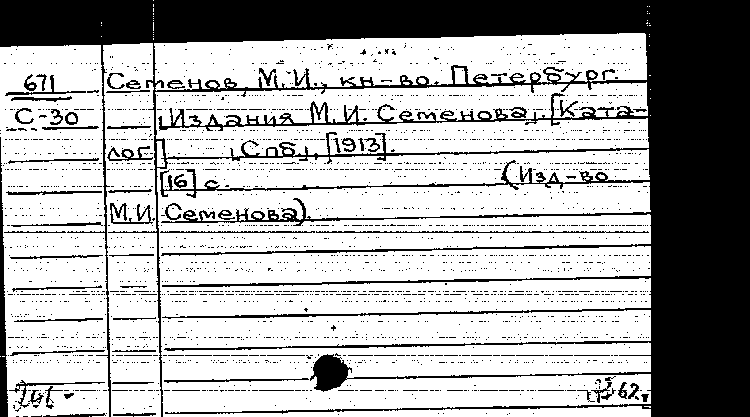 671 Семенов, М.И., кн-во. Петербург.
С-30 „Издания М.И. Семенова„. [Ката-
лог] „Спб„, [1913].
[16] с. (Изд-во
М.И. Семенова).
62.